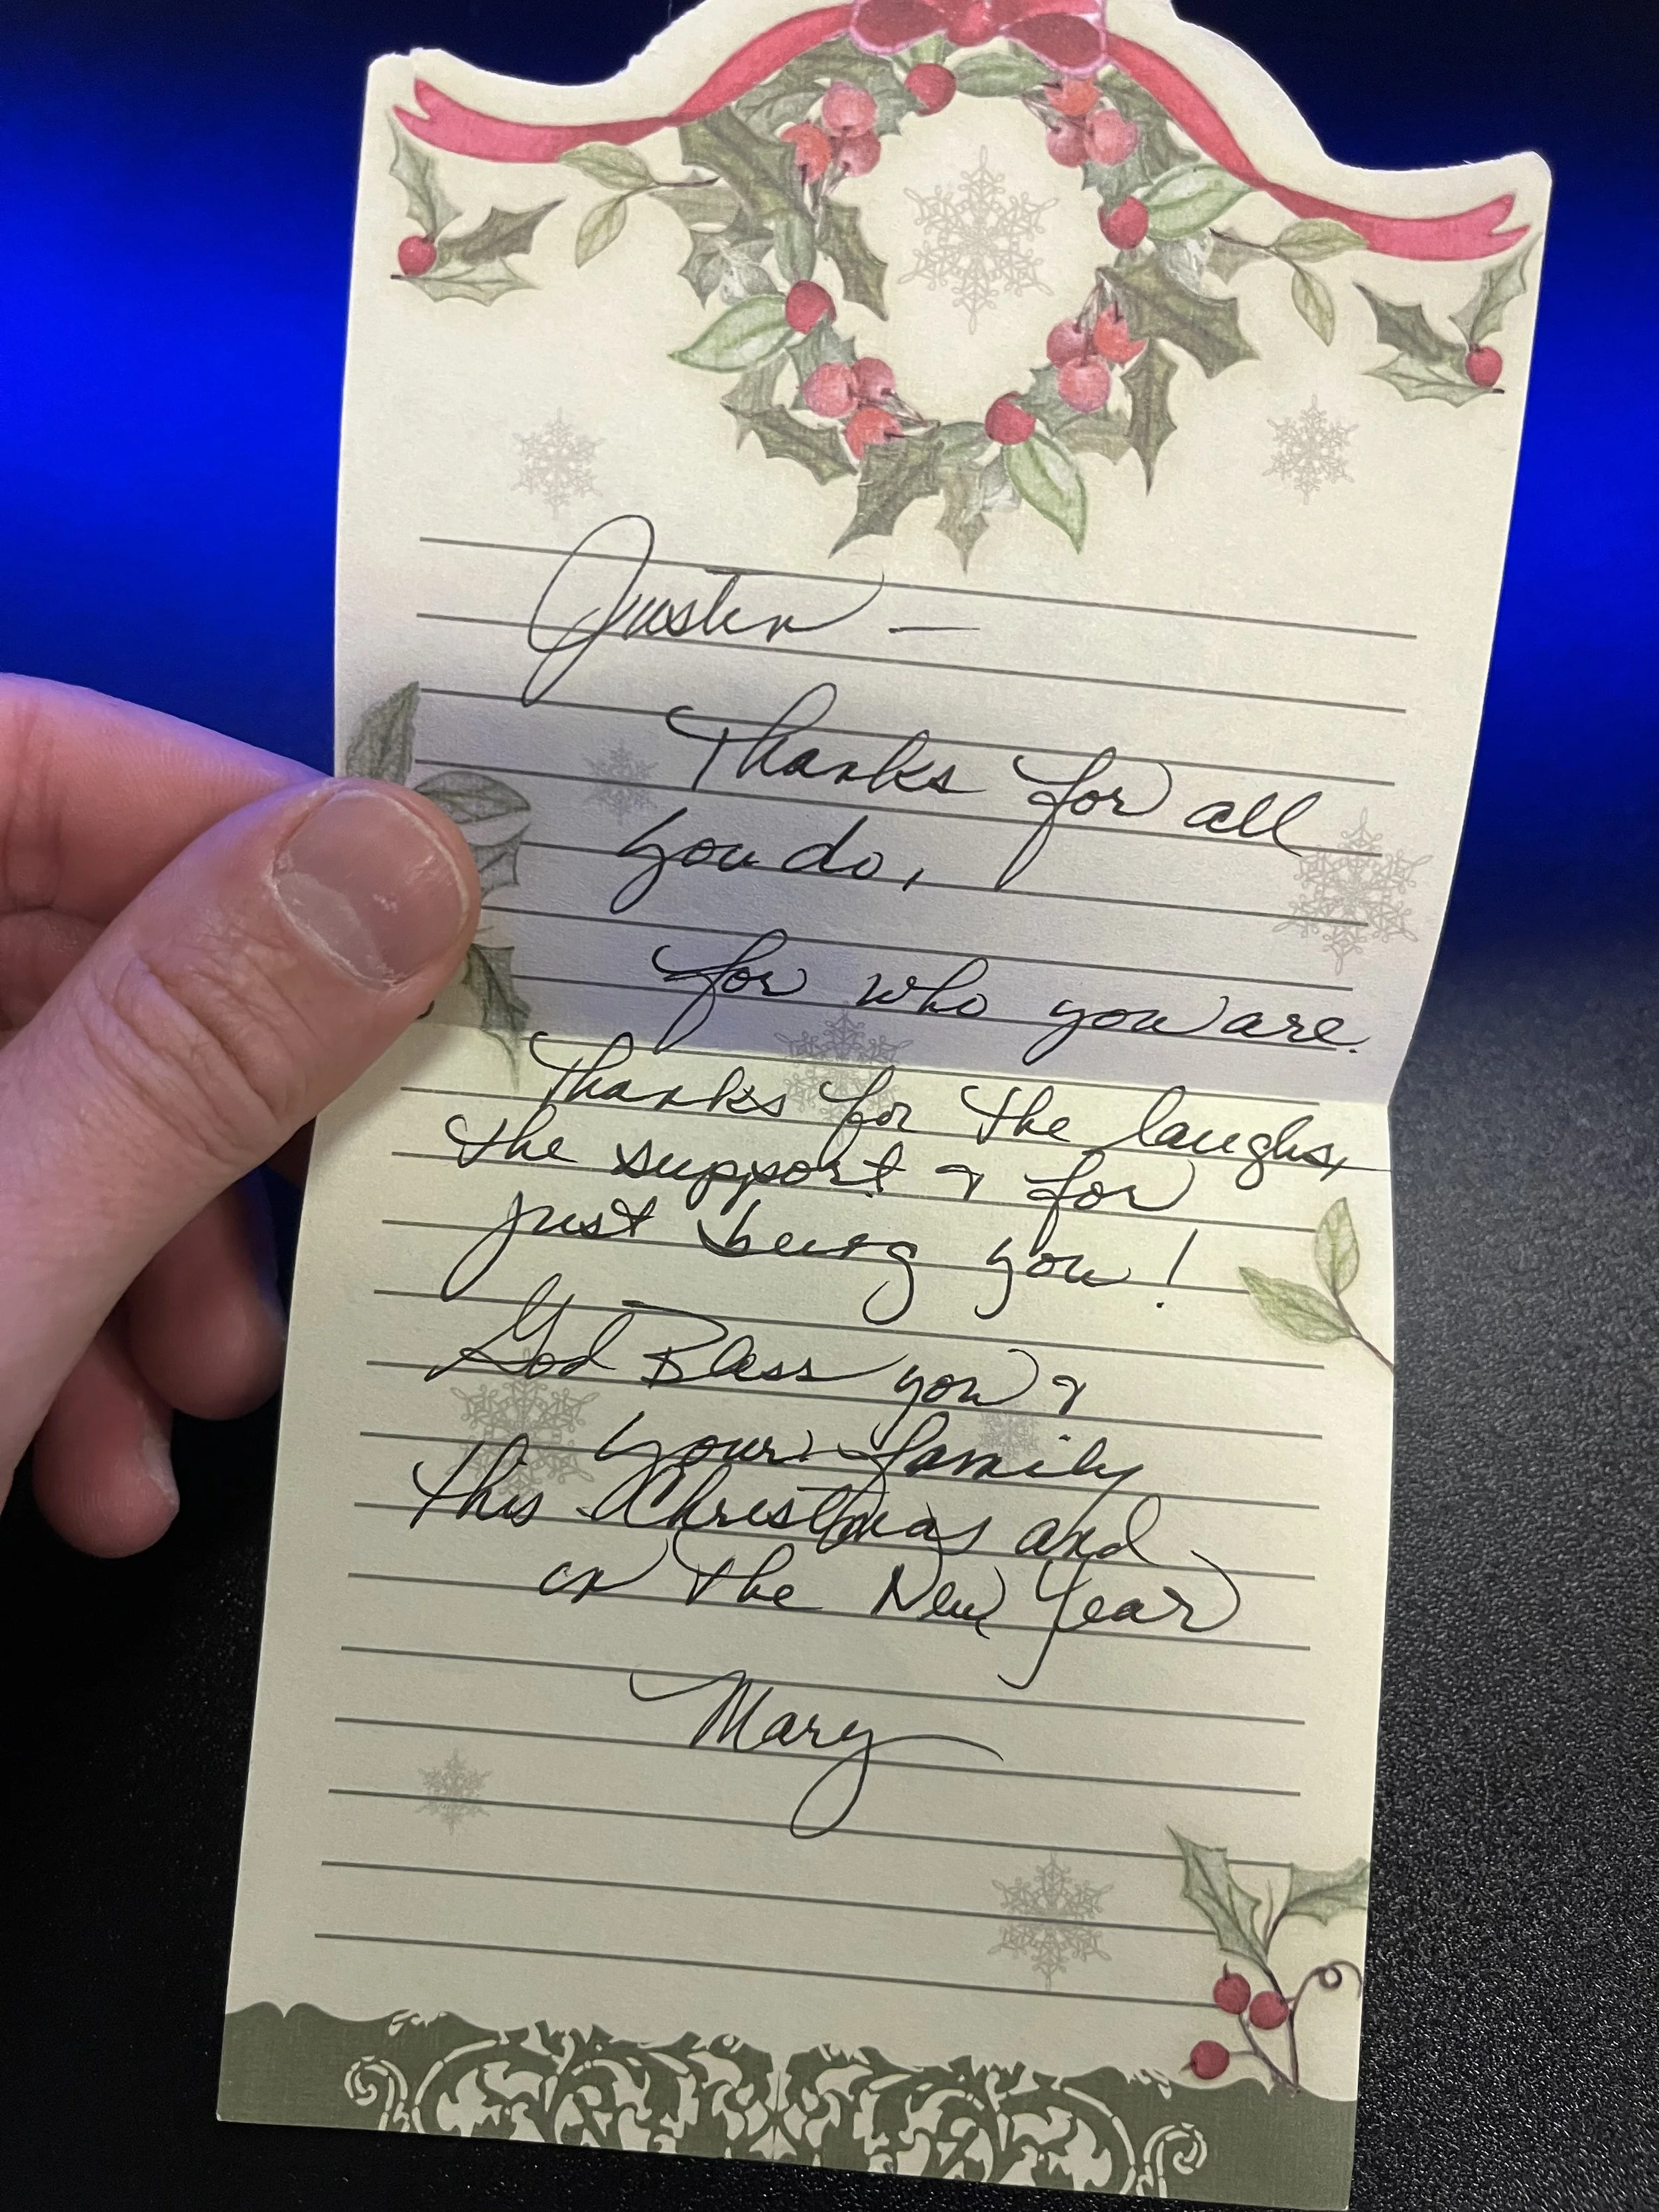 Justin —
Thanks for all
you do,
for who you are.
Thanks for the laughs,
the support & for
just being you!
God Bless you &
your family
this Christmas and
in the New Year
Mary